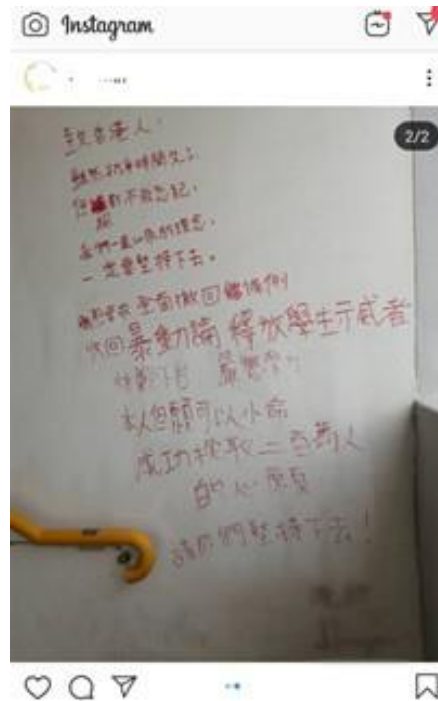 Instagram
2/2
致香港人:
雖然抗爭時間久了,
但絕對不能忘記,
我們一直以來的理念,
一定要堅持下去。
全面撤回條例
收回暴動論 釋放學生示威者
本人但願可以小命
成功換取二百萬人
的心願
請你們堅持下去!